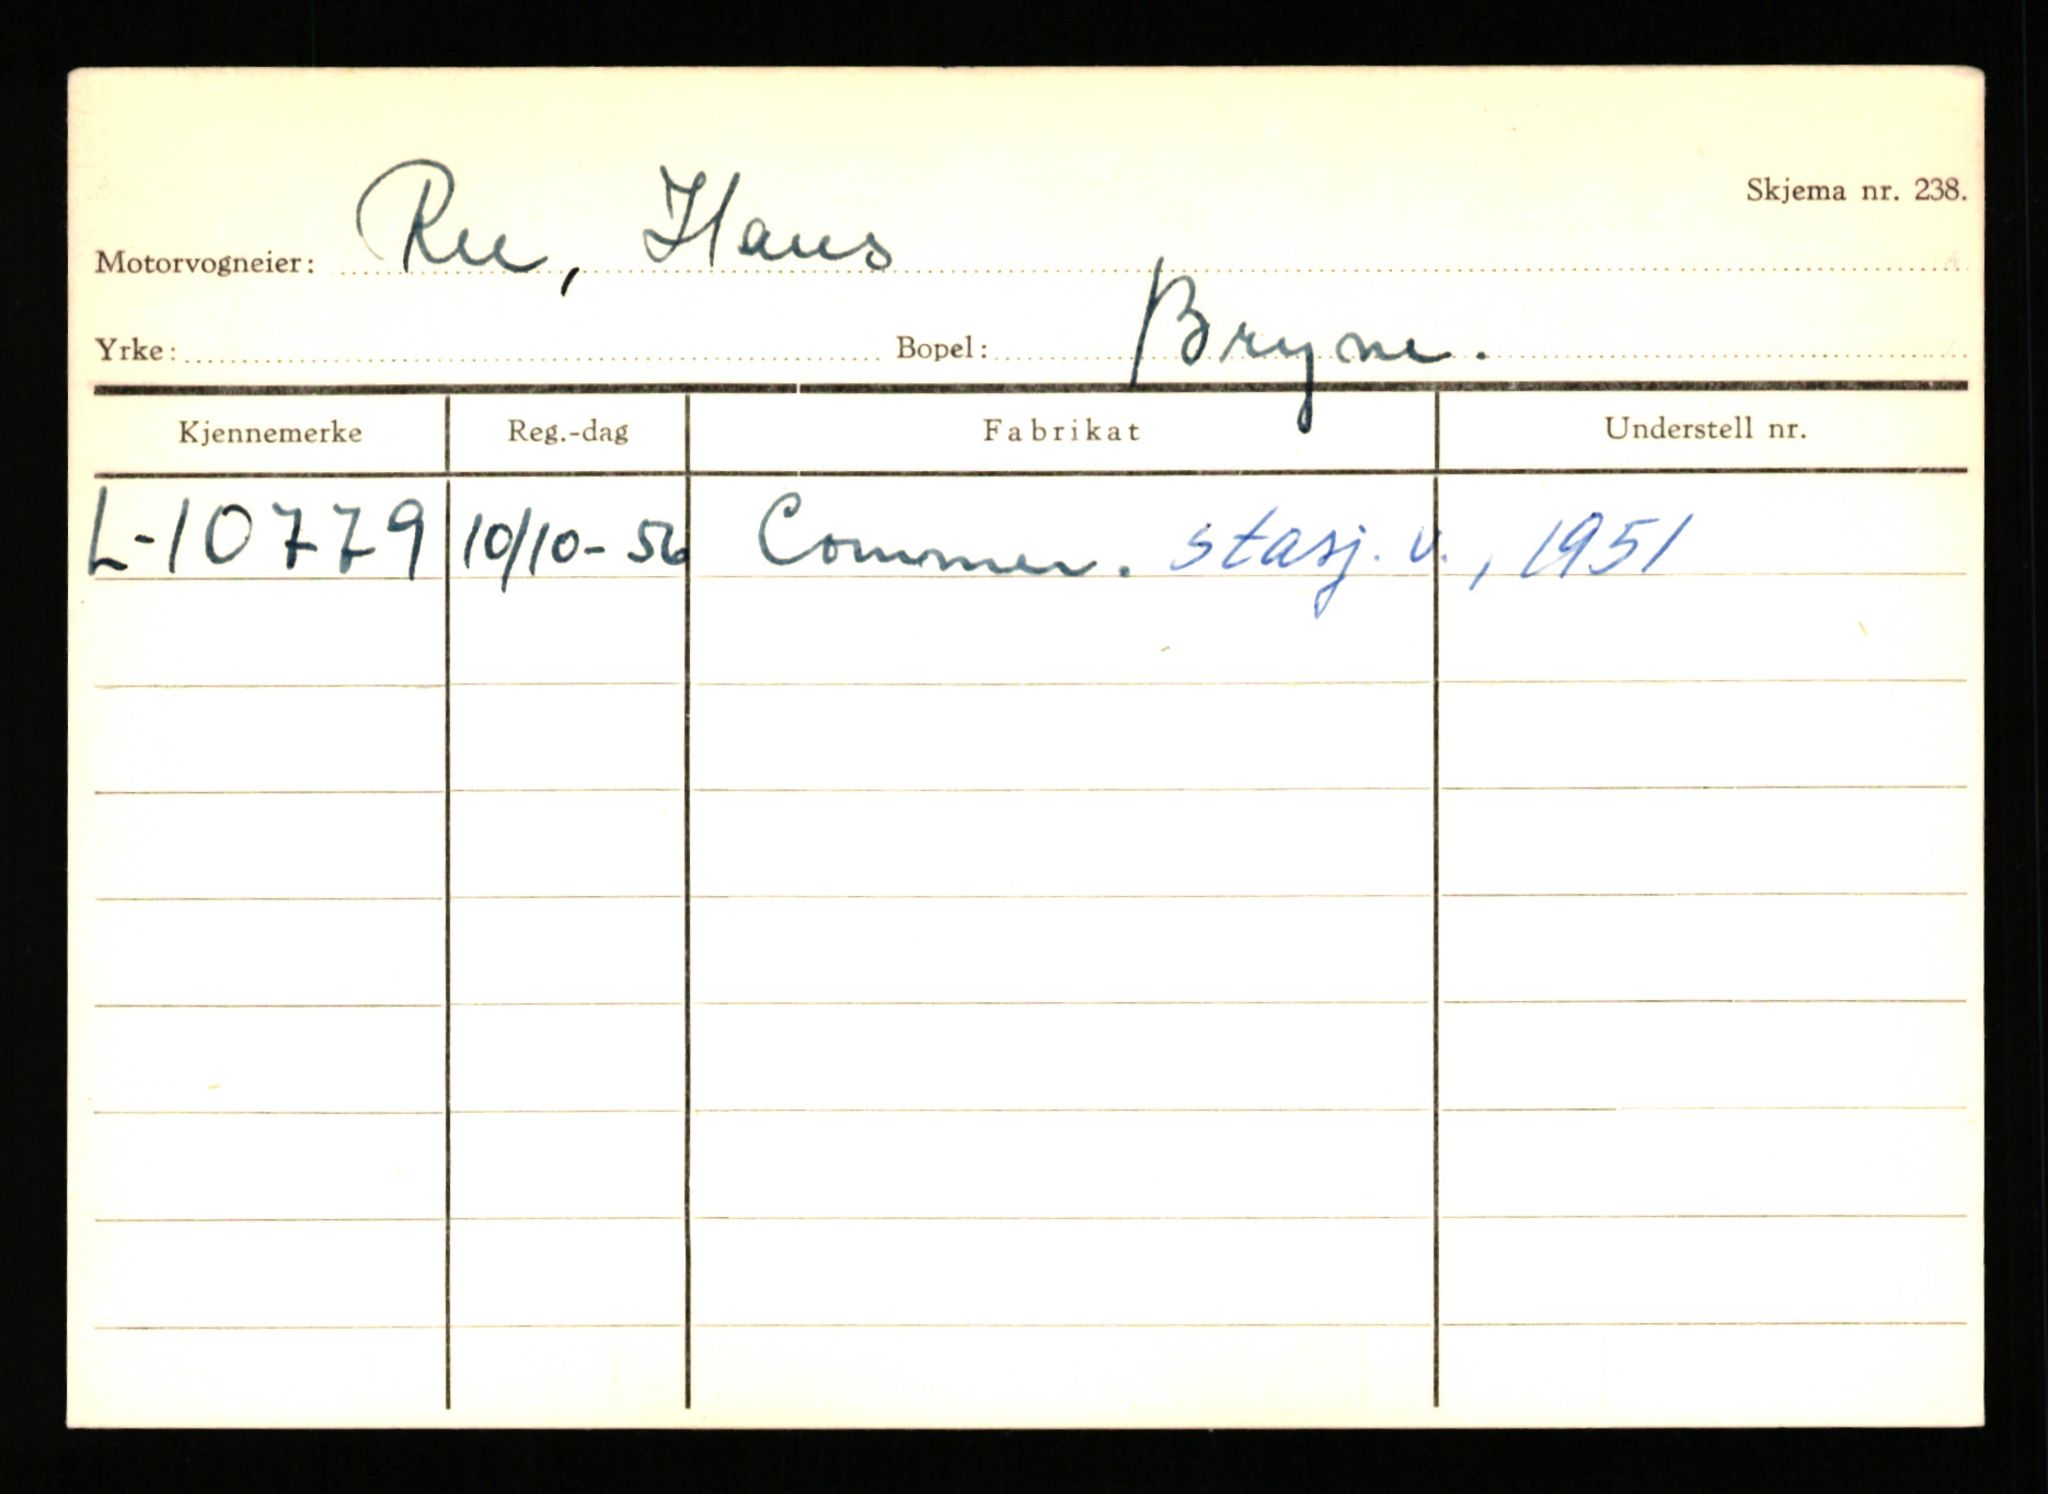 Skjema nr. 238.
Motorvogneier: Ree, Hans
Yrke: Bopel: Bryne.
Kjennemerke Reg.-dag Fabrikat Understell nr.
L-10779 10/10-56 Commer. stasj. v., 1951